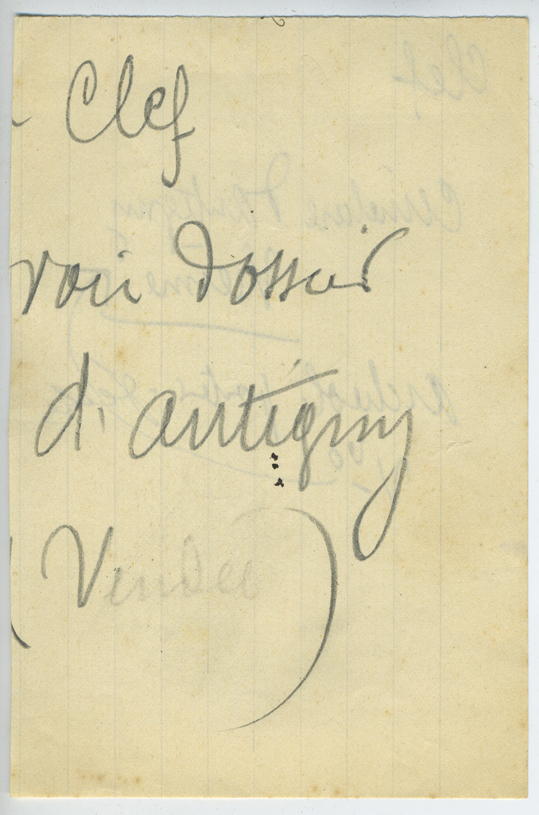 Clef
voir dossier
d'antigny
(Vendée)